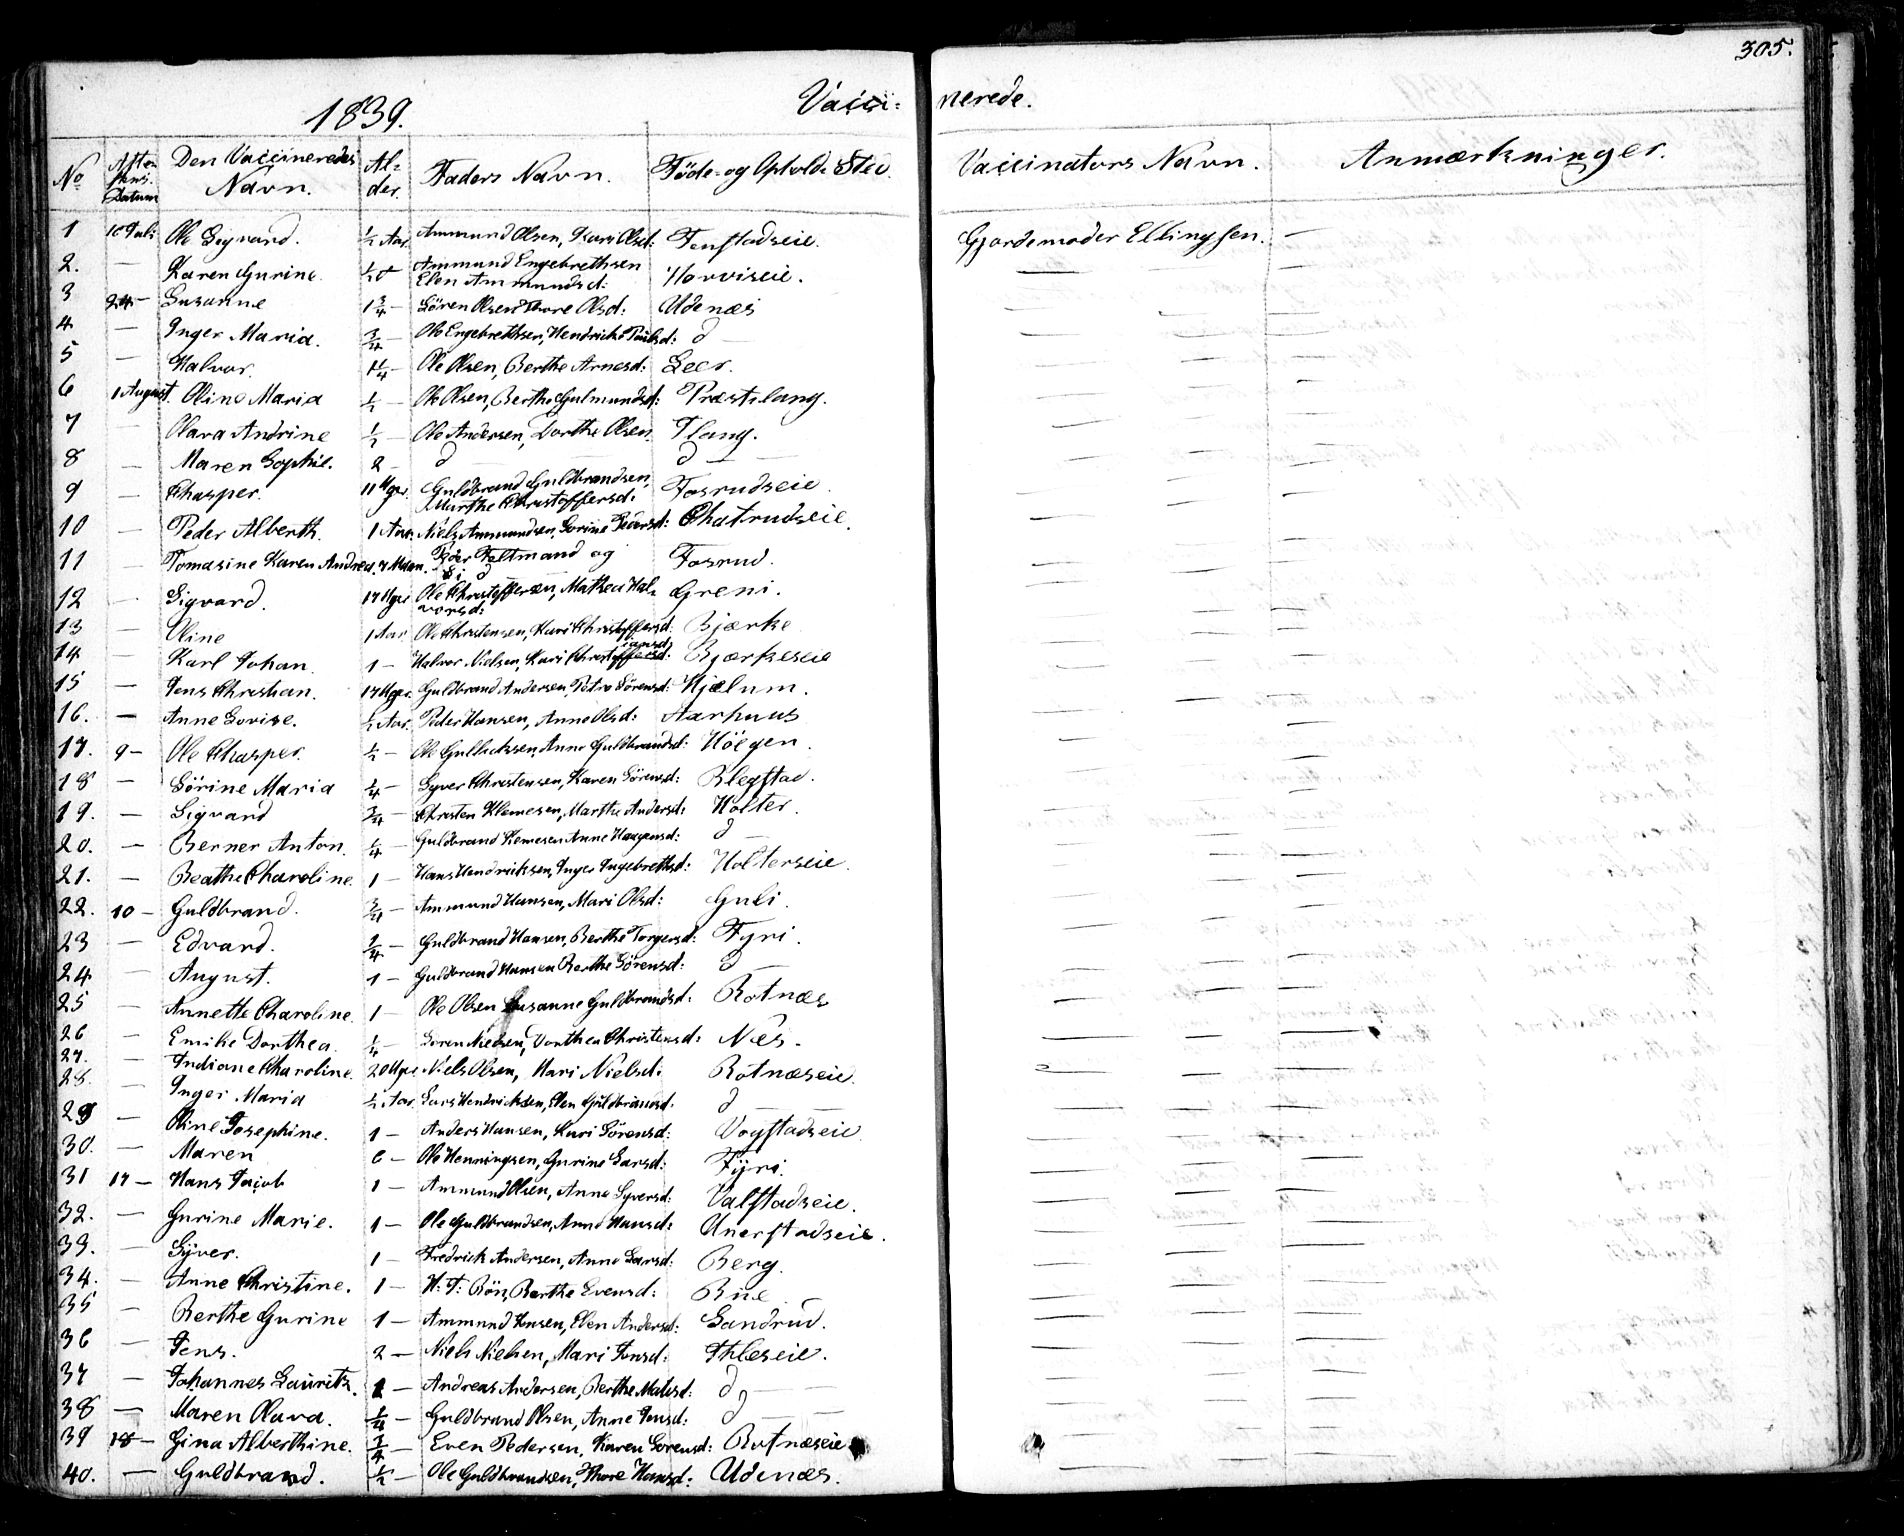 305.
1839.
Vacci= nerede.
No Attestens Datum Den Vaccineredes Navn. Alder. Faders Navn. Føde- og Opholds Sted. Vaccinators Navn. Anmærkninger.
1 10 Juli Ole Sigvard. ½ Aar Ammund Olsen, Kari Olsd: Tenstadseie. Gjordemoder Ellingsen. —
2. — Karen Gurine. ½ Ammund Engebrethsen Elen Ammundsd: Horviseie. — —
3 24 — Susanne 1¾ — Sören Olsen Thore Olsd: Udenæs — —
4 — Inger Maria. ¾ — Ole Engebrethsen, Hendricke Paulsd: d — — —
5 — Halvor. 1¼ — Ole Olsen, Berthe Arnesd: Leer. — —
6 1 August. Oline Maria ½ — Ole Olsen, Berthe Gulmundsd: Præstelang. — —
7 — Olava Andrine ½ — Ole Andersen, Dorthe Olsen Flang. — —
8 — Maren Sophie. 2 — d — d — — —
9 — Chasper. 11 Uger. Guldbrand Guldbrandsen, Marthe Christoffersd: Fosrudseie. — —
10 — Peder Alberth. 1 Aar. Niels Ammundsen, Gorine Pedersd: Chatrudseie. — —
11 — Tomasine Karen Andrea. 7 Maan. Peder Feltmand og Si d Fosrud. — —
12 — Sigvard. 17 Uger Ole Christoffersen, Mathea Halvorsd: Greni. — —
13 — Oline 1 Aar Ole Christensen, Kari Christoffersd: Bjærke — —
14 — Karl Johan. 1 — Halvor Nielsen, Kari Christoffersd: iansd Bjærkeseie — —
15 — Jens Christian. 17 Uger. Guldbrand Andersen, Petro Sörensd: Kjælum. — —
16. — Anne Lovise. ½ Aar. Peder Hansen, Anne Olsd: Aarhuus — —
17. 9 — Ole Chasper. ½ — Ole Gullicksen, Anne Guldbrandsd: Höegen. — —
18 — Sörine Maria ¼ — Syver Christensen, Karen Sörensd: Blegstad. — —
19. — Sigvard ¾ — Christen Klemesen, Marthe Andersd: Holter. — —
20. — Berner Anton. ¼ — Guldbrand Klemesen Anne Haagensd: d — — —
21. — Beathe Charoline. 1 — Hans Hendricksen, Inger Ingebrethsd: Holterseie. — —
22. 10 — Guldbrand. ¾ — Ammund Hansen, Mari Olsd: Guli. — —
23 — Edvard. ¾ — Guldbrand Hansen, Berthe Torgersd: Fyri. — —
24 — August. 1 — Guldbrand Hansen Berthe Sörensd: d — — —
25 — Annette Charoline. 1 — Ole Olsen Susanne Guldbrandsd: Rotnæs — —
26 — Emilie Dorthea. ¼ — Soren Nielsen, Dorthea Christensd: Næs. — —
27. — Indiane Charoline. 20 Uger Niels Olsen, Mari Nielsd: Rotnæseie. — —
28. — Inger Maria ½ Aar. Lars Hendricksen, Elen Guldbrandsd. d — — —
29 — Oline Josephine. 1 — Anders Hansen, Kari Sörensd: Vogstadseie. — —
30. — Maren 6 — Ole Henningsen, Gurine Larsd: Fyri. — —
31 17 — Hans Jacob 1 — Ammund Olsen, Anne Syversd: Valstadseie. — —
32. — Gurine Marie. 1 — Ole Guldbrandsen, Anne Hansd: Unerstadseie. — —
33. — Syver. 1 — Fredrick Andersen, Anne Larsd: Berg. — —
34. — Anne Christine. 1 — H: T: Rön, Berthe Evensd: Bue — —
35 — Berthe Gurine 1 — Ammund Jensen, Elen Andersd: Sandrud. — —
36 — Jens. 2 — Niels Nielsen, Mari Jonsd: Ihleseie. — —
37 — Johannes Lauritz. 1 — Andreas Andersen, Berthe Matisd: d — — —
38 — Maren Olava. ¼ — Guldbrand Olsen, Anne Jensd: d — — —
39 18 — Gina Alberthine. ¾ — Even Pedersen, Karen Sorensd: Rotnæseie — —
40. — Guldbrand. ½ — Ole Guldbrandsen, Thore Hansd: Udenæs. — —